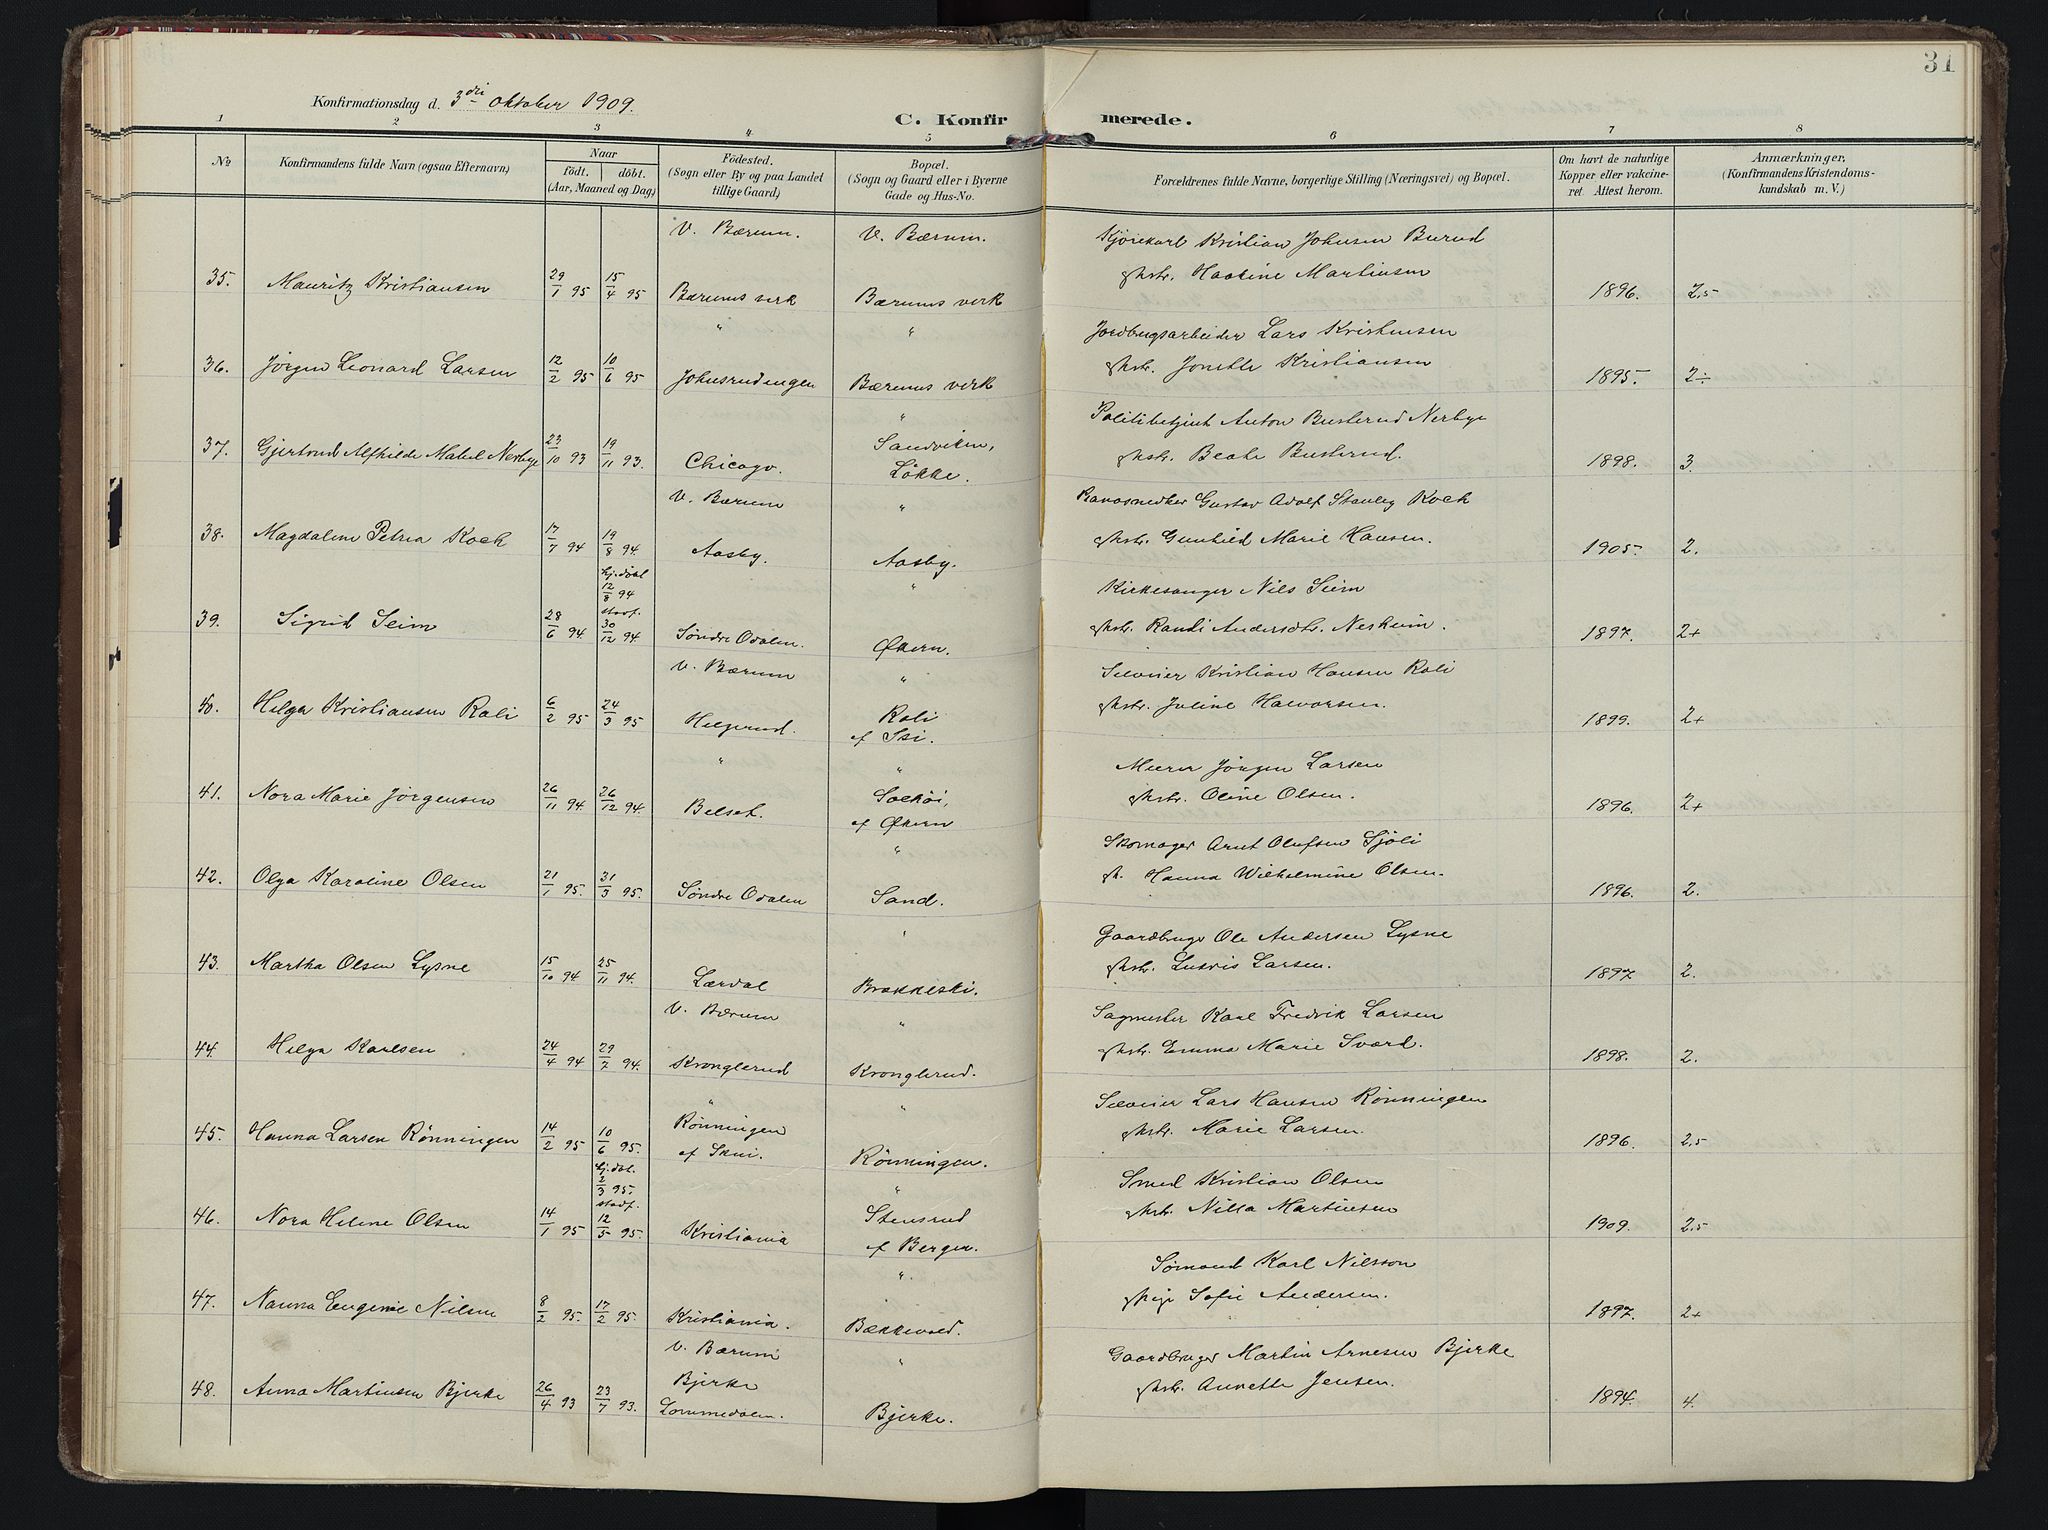 31
Konfirmationsdag d. 3die oktober 1909.
C. Konfirmerede.
1 2 3 4 5 6 7 8
No
Konfirmandens fulde Navn (ogsaa Efternavn)
Naar
födt. döbt.
(Aar, Maaned og Dag)
Födested.
(Sogn eller By og paa Landet
tillige Gaard)
Bopæl.
(Sogn og Gaard eller i Byerne
Gade og Hus-No.
Forældrenes fulde Navne, borgerlige Stilling (Næringsvei) og Bopæl.
Om havt de naturlige
Kopper eller vakcine-
ret. Attest herom.
Anmærkninger,
(Konfirmandens Kristendoms-
kundskab m. V.)
V. Bærum. V. Bærum. Kjörekarl Kristian Johnsen Burud
35. Mauritz Kristiansen 29/1 95 15/4 95 Bærums verk Bærums verk Hustr. Haakine Martinsen 1896. 2,5
" " Jordbrugsarbeider Lars Kristensen
36. Jörgen Leonard Larsen 12/2 95 10/6 95 Johnsrudengen Bærums verk Hustr. Jonette Kristiansen 1895. 2÷
" Politibetjent Anton Busterud Nerbye
37. Gjertrud Alfhilde Mabel Nerbye 23/10 93 19/11 93. Chicago. Sandviken, Løkke. Hustr. Beate Busterud. 1898. 3.
V. Bærum " Gustav Adolf Stanley Koch
38. Magdalene Petrea Koch 17/7 94 19/8 94. Aasby. Aasby. Hustr. Gunhild Marie Hansen. 1905. 2.
hj.döbt 12/8 94 stadf. " Kirkesanger Nils Seim
39. Sigrid Seim 28/6 94. 30/12 94 Søndre Odalen. Økern. Hustr. Randi Andersdtr. Neskuim. 1897. 2+
V. Bærum " Selveier Kristian Hansen Roli
40. Helga Kristiansen Roli 6/2 95 24/3 95 Helgerud. Roli af Ski. Hustr. Juline Halvorsen. 1899. 2+
" " Murer Jørgen Larsen
41. Nora Marie Jörgensen 26/11 94. 26/12 94. Belset. Solhöi, af Økern Hustr. Oline Olsen. 1896. 2+
" Skomager Arnt Olufsen Sjöli
42. Olga Karoline Olsen 21/1 95. 31/3 95. Søndre Odalen Sand. H. Hanna Wilhelmine Olsen. 1896. 2.
" Gaardbruger Ole Andersen Lysne
43. Martha Olsen Lysne 15/10 94 25/11 94. Lærdal Brakkeski. Hustr. Ludvis Larsen. 1897 2.
V. Bærum " Sagmester Karl Fredrik Larsen
44. Helga Karlsen 24/4 94 29/7 94. Kronglerud Kronglerud. Hustr. Emma Marie Sværd. 1898. 2.
" " Selveier Lars Hansen Rönningen
45. Hanna Larsen Rönningen 14/2 95 10/6 95. Rönningen af Skui. Rönningen. Hustr. Marie Larsen. 1896. 2,5
hj.döbt. 2/3 95. stadf. " Smed Kristian Olsen
46. Nora Helene Olsen 14/1 95 12/5 95. Kristiania Stensrud af Berger. Hustr. Nilla Martinsen 1909. 2,5
" Sömand Karl Nilsson
47. Nanna Eugenie Nilsen 8/2 95. 17/2 95. Kristiania. Bækkevold. Pige Sofie Andersen. 1897. 2+
V. Bærum " Gaardbruger Martin Arnesen Bjerke
48. Anna Martinsen Bjerke 26/4 93 23/7 93. Bjerke Lommedalen. Bjerke. Hustr. Annette Jensen. 1894. 4.